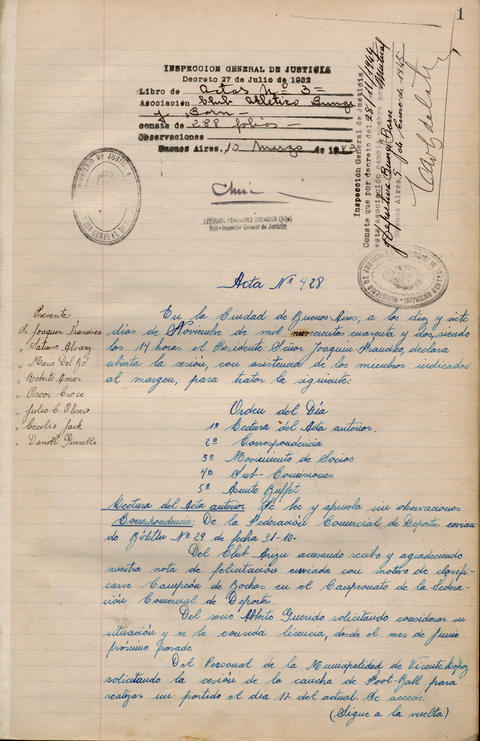 1
INSPECCION GENERAL DE JUSTICIA
Decreto 27 de Julio de 1932
Libro de Actas Nº 3
Asociación Club Atlético Bunge
y Born
consta de 288 folios
Observaciones
Buenos Aires, 10 Marzo de 194
Inspección General de Justicia
Consta que por decreto del 28/11/1944
esta asociación cambió
y Deportiva Bunge Born
Buenos Aires, 5 de Enero de 1945
Sub-Inspector General de Justicia
Acta Nº 428
Presente
Joaquin Francisco
Mario Del
Roberto Amor
Oscar Croce
Julio C. Olivero
Cecilio Jack
Daniel
En la Ciudad de Buenos Aires, a los diez y siete
días de Noviembre de mil novecientos cuarenta y dos, siendo
los 19 horas el Presidente Señor Joaquin Francisco, declara
abierta la sesión, con asistencia de los miembros indicados
al margen, para tratar lo siguiente:
Orden del Día
1º Lectura del Acta anterior.
2º Correspondencia
3º Movimiento de Socios
4º Sub-Comisiones
5º Asunto Buffet
Lectura del Acta anterior Se lee y aprueba sin observaciones
Correspondencia: De la Federación Comercial de Deportes envian-
do Boletín Nº 29 de fecha 31-10.
Del Club acusando recibo y agradeciendo
nuestra nota de felicitación enviada con motivo de clasifi-
carse Campeón de Bochas en el Campeonato de la Federa-
ción Comercial de Deportes.
Del socio Alberto Guerido solicitando considerar su
situación y se le conceda licencia, desde el mes de Junio
próximo pasado.
Del Personal de la Municipalidad de Vicente López
solicitando la cesión de la cancha de Foot-Ball para
realizar un partido el día 12 del actual. Se accede.
(Sigue a la vuelta)